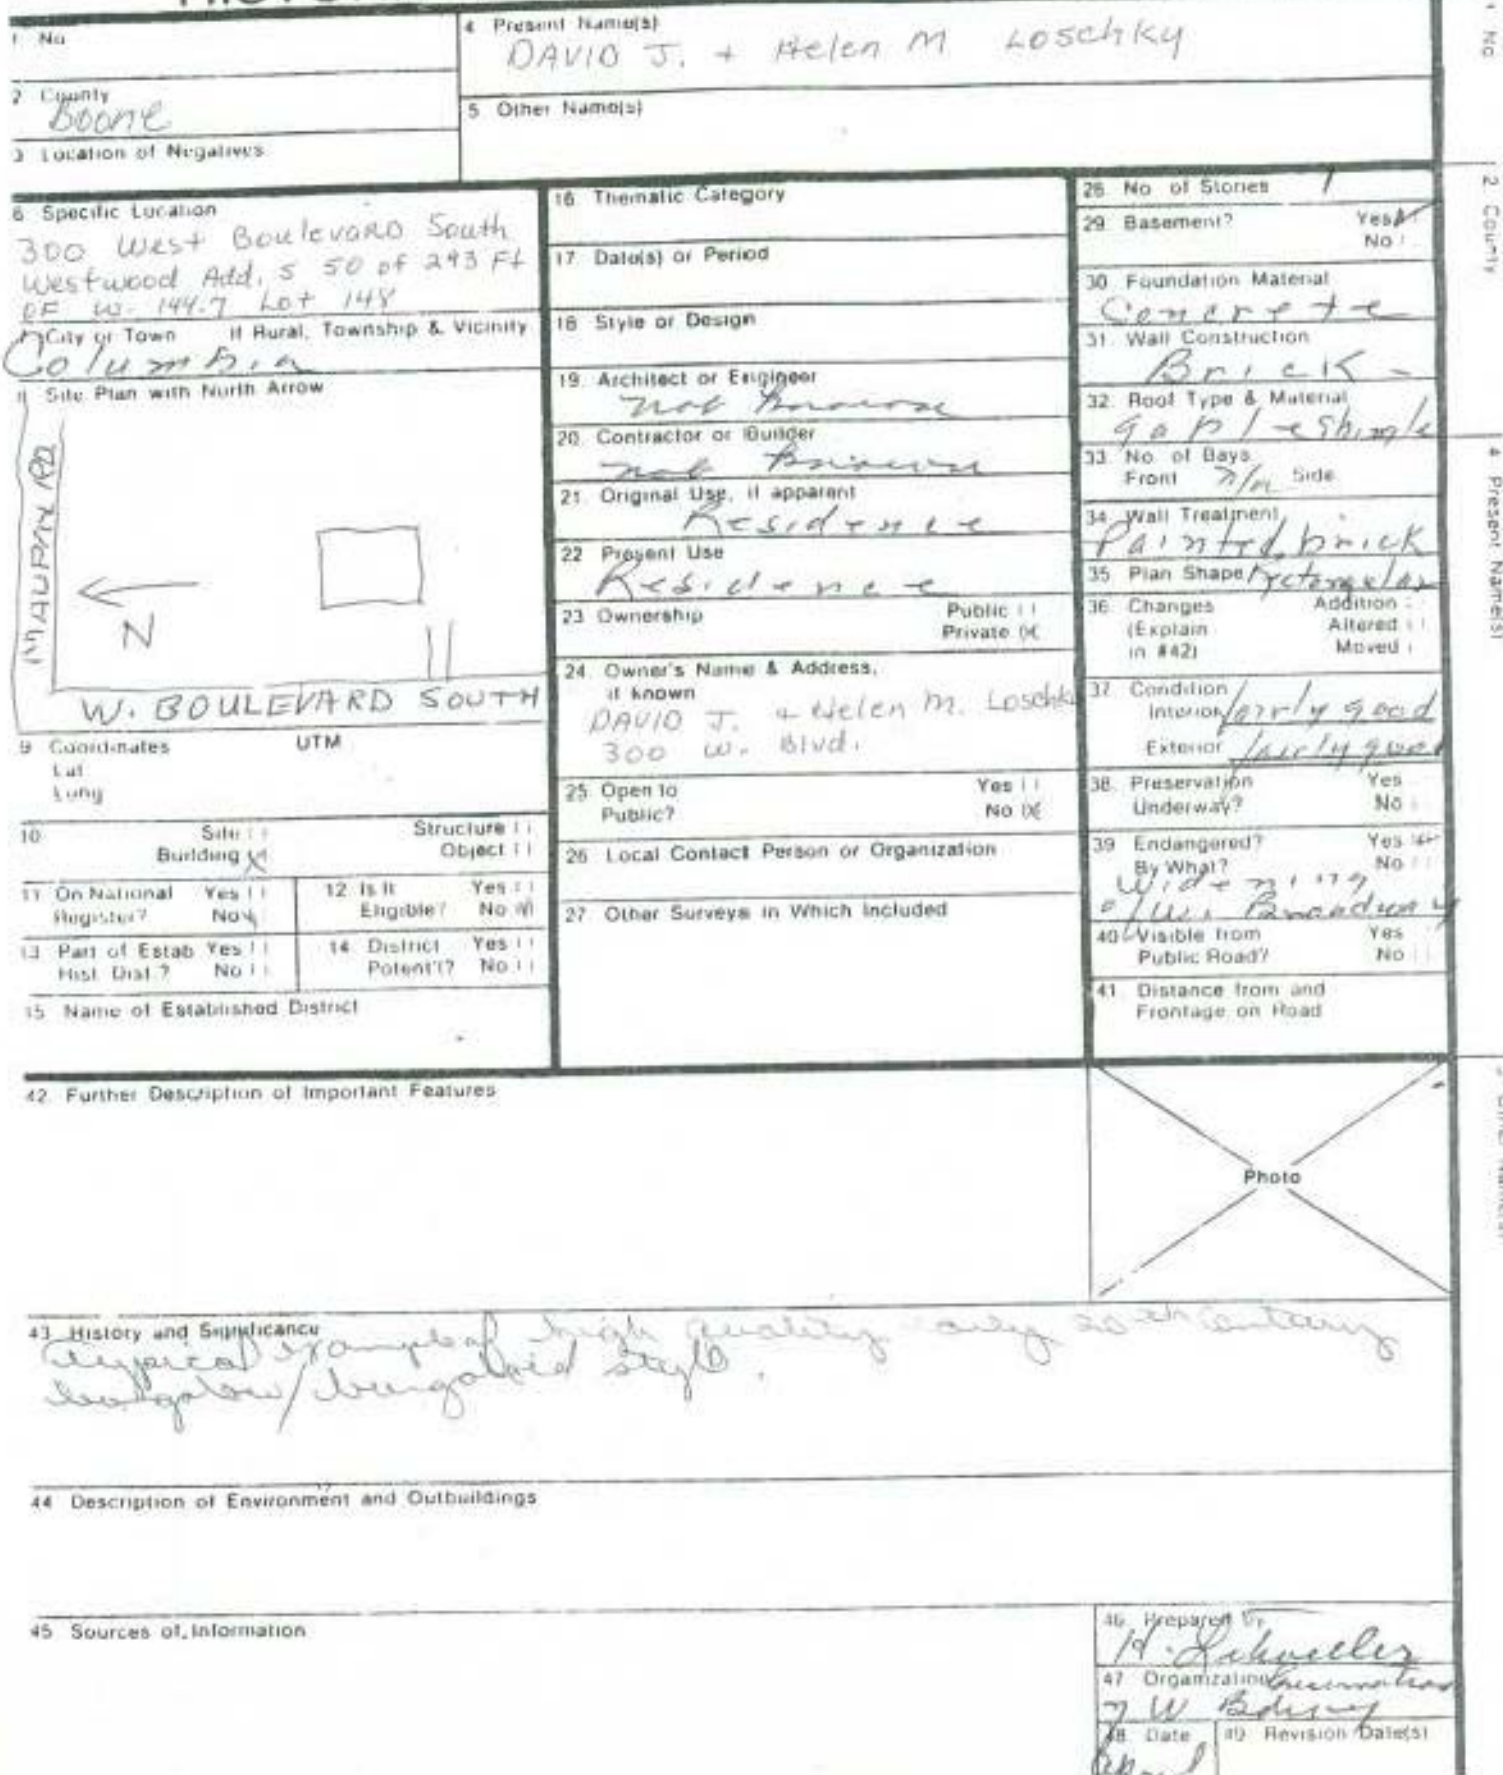 1 No
4 Present Name(s)
DAVID J. + Helen M Loschky
2 County
Boone
5 Other Name(s)
3 Location of Negatives
6 Specific Location
300 West Boulevard South
Westwood Add. S 50 of 293 Ft
of W- 144.7 Lot 148
City or Town If Rural, Township & Vicinity
Columbia
Site Plan with North Arrow
MAUPIN RD
N
W. BOULEVARD SOUTH
9 Coordinates UTM
Lat
Long
10 Site Structure
Building Object
11 On National Register? Yes No
12 Is It Eligible? Yes No
13 Part of Estab Hist. Dist.? Yes No
14 District Potent'l? Yes No
15 Name of Established District
16 Thematic Category
17 Date(s) or Period
18 Style or Design
19. Architect or Engineer
not known
20. Contractor or Builder
not known
21. Original Use, if apparent
Residence
22 Present Use
Residence
23 Ownership Public
Private
24 Owner's Name & Address,
if known
DAVID J. + Helen M. Loschky
300 W. Blvd.
25 Open to Yes
Public? No
26 Local Contact Person or Organization
27 Other Surveys in Which Included
28 No of Stories 1
29 Basement? Yes
No
30 Foundation Material
Concrete
31 Wall Construction
Brick
32 Roof Type & Material
gable shingle
33 No. of Bays
Front Side
34 Wall Treatment
Painted brick
35 Plan Shape Rectangular
36 Changes Addition
(Explain Altered
in #42) Moved
37 Condition
Interior fairly good
Exterior fairly good
38 Preservation Yes
Underway? No
39 Endangered? Yes
By What? No
Widening
of W. Broadway
40 Visible from Yes
Public Road? No
41 Distance from and
Frontage on Road
42 Further Description of Important Features
Photo
43 History and Significance
atypical example of high quality early 20th Century
bungalow/bungaloid style.
44 Description of Environment and Outbuildings
45 Sources of Information
46 Prepared by
47 Organization
48 Date 49 Revision Date(s)
April
1 No
2 County
4 Present Name(s)